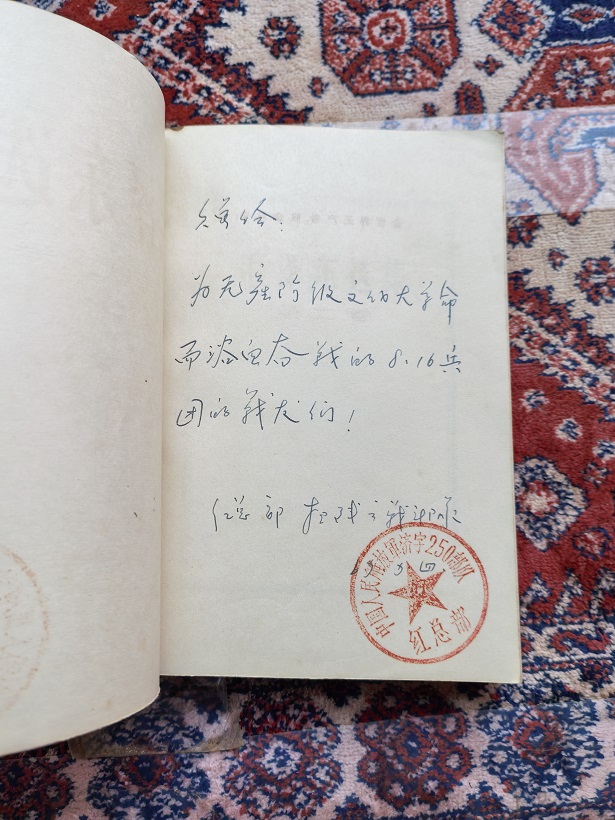 敬给:
为无产阶级文化大革命
而浴血奋战的8.16兵
团的战友们!
红总部
战斗队
五四
中国人民解放军济字250部队
红总部